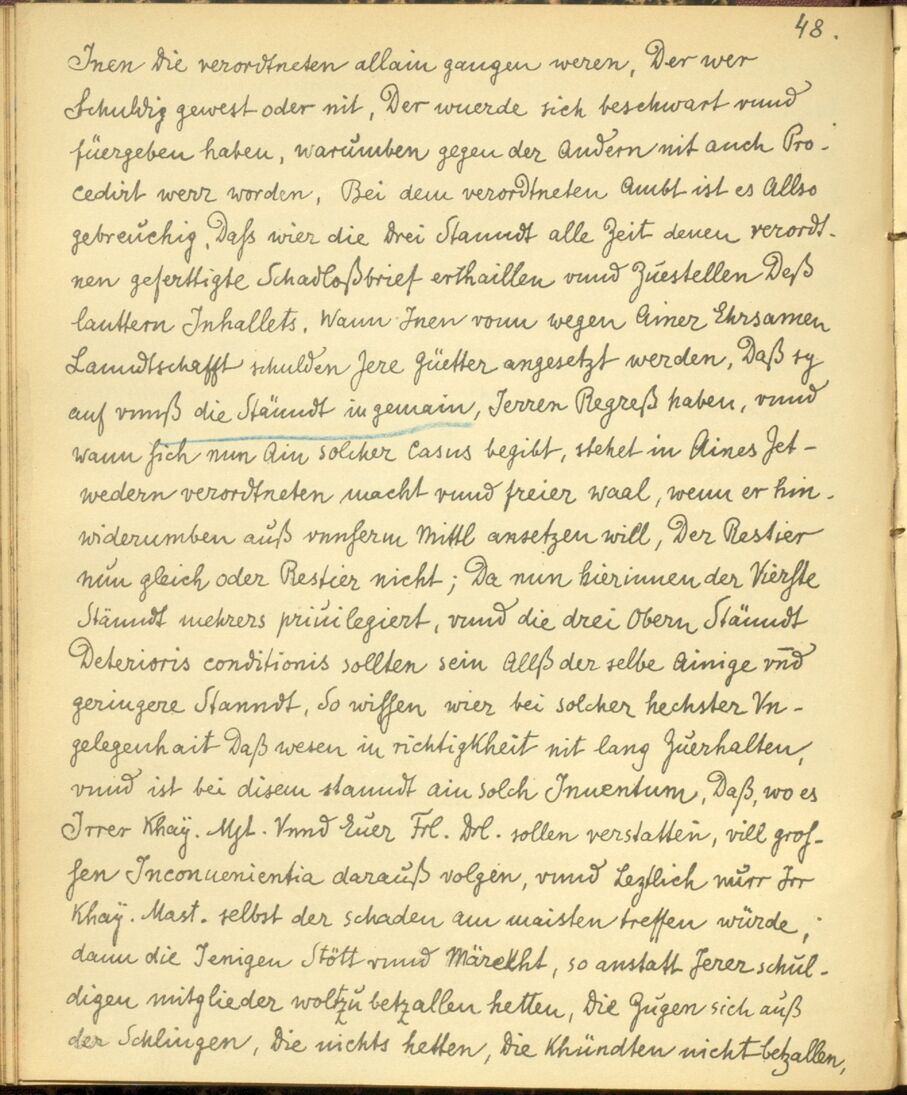 48.
Inen die verordtneten allain gangen weren, Der wer
schuldig gewest oder nit, Der wuerde sich beschwart vnnd
füergeben haben, warumben gegen der Andern nit auch Pro-
cedirt werr worden, Bei dem verordtneten Ambt ist es Allso
gebreuchig, Daß wier die drei Stanndt alle Zeit denen verordt-
nen gefertigte Schadloßbrief erthaillen vnnd Zuestellen Deß
lauttern Inhallets, Wann Inen vonn wegen Ainer Ehrsamen
Lanndtschafft schulden Jere güetter angesetzt werden, Daß sy
auf vnnß die Stänndt in gemain, Ierren Regreß haben, vnnd
wann sich nun Ain solcher Casus begibt, stehet in Aines Jet-
wedern verordtneten macht vnnd freier waal, wenn er hin-
widerumben auß vnnserm Mittl ansetzen will, Der Restier
nun gleich oder Restier nicht; Da nun hierinnen der Vierste
Stänndt mehrers priuilegiert, vnnd die drei Obern Stänndt
Deterioris conditionis sollten sein Allß der selbe Ainige vnd
geringere Stanndt, So wissen wier bei solcher hechster Vn-
gelegenhait Daß wesen in richtigkheit nit lang Zuerhalten,
vnnd ist bei disem stanndt ain solch Inuentum, Daß, wo es
Irrer Khaÿ. Mgt. Vnnd Euer Frl. Drl. sollen verstatten, vill gros-
sen Inconuenientia darauß volgen, vnnd Leztlich nurr Irr
Khaÿ. Mast. selbst der schaden am maisten treffen würde,
dann die Ienigen Stött vnnd Märckht, so anstatt Jerer schul-
digen mitglieder wol zu betzallen hetten, Die Zugen sich auß
der Schlingen, Die nichts hetten, Die Khündten nicht betzallen,